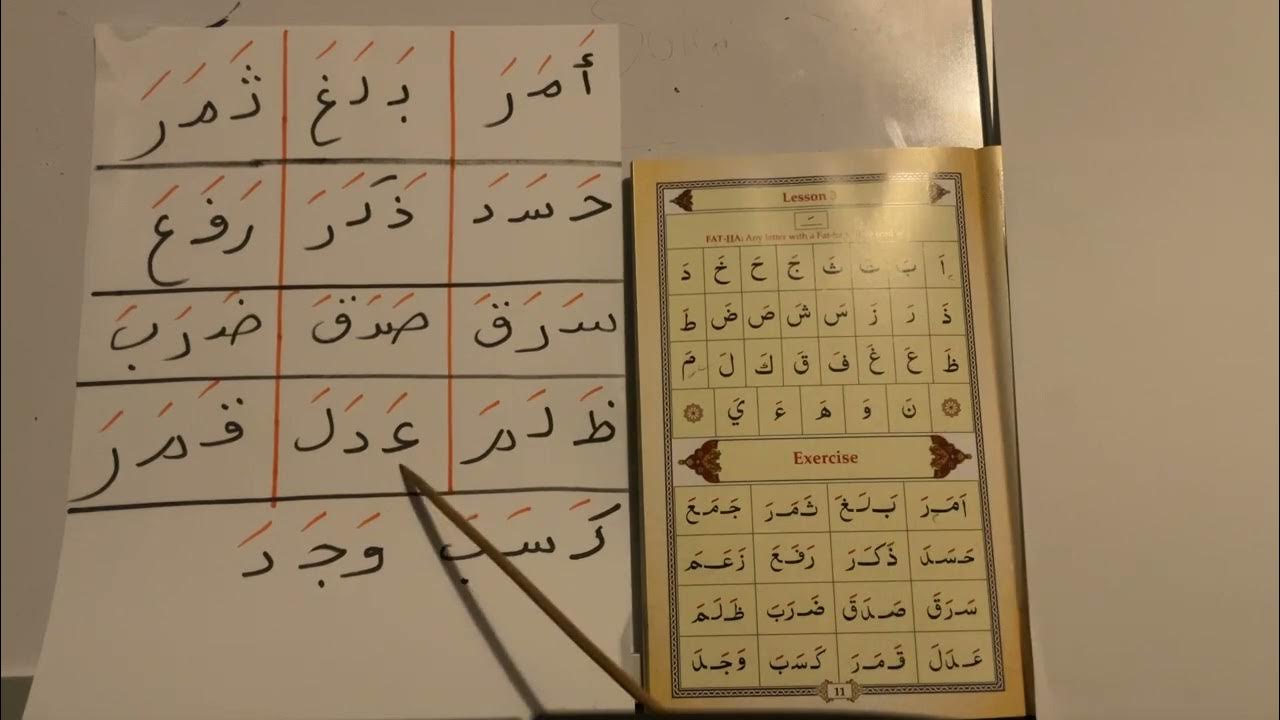 أَمَرَ بَلَغَ ثَمَرَ
حَسَدَ ذَكَرَ رَفَعَ
سَرَقَ صَدَقَ ضَرَبَ
ظَلَمَ عَدَلَ قَمَرَ
كَسَبَ وَجَدَ
Lesson 3
FAT-HA: Any letter with a Fat-ha
اَ بَ تَ ثَ جَ حَ خَ دَ
ذَ رَ زَ سَ شَ صَ ضَ طَ
ظَ عَ غَ فَ قَ كَ لَ مَ
نَ وَ هَ ءَ يَ
Exercise
اَمَرَ بَلَغَ ثَمَرَ جَمَعَ
حَسَدَ ذَكَرَ رَفَعَ زَعَمَ
سَرَقَ صَدَقَ ضَرَبَ ظَلَمَ
عَدَلَ قَمَرَ كَسَبَ وَجَدَ
11